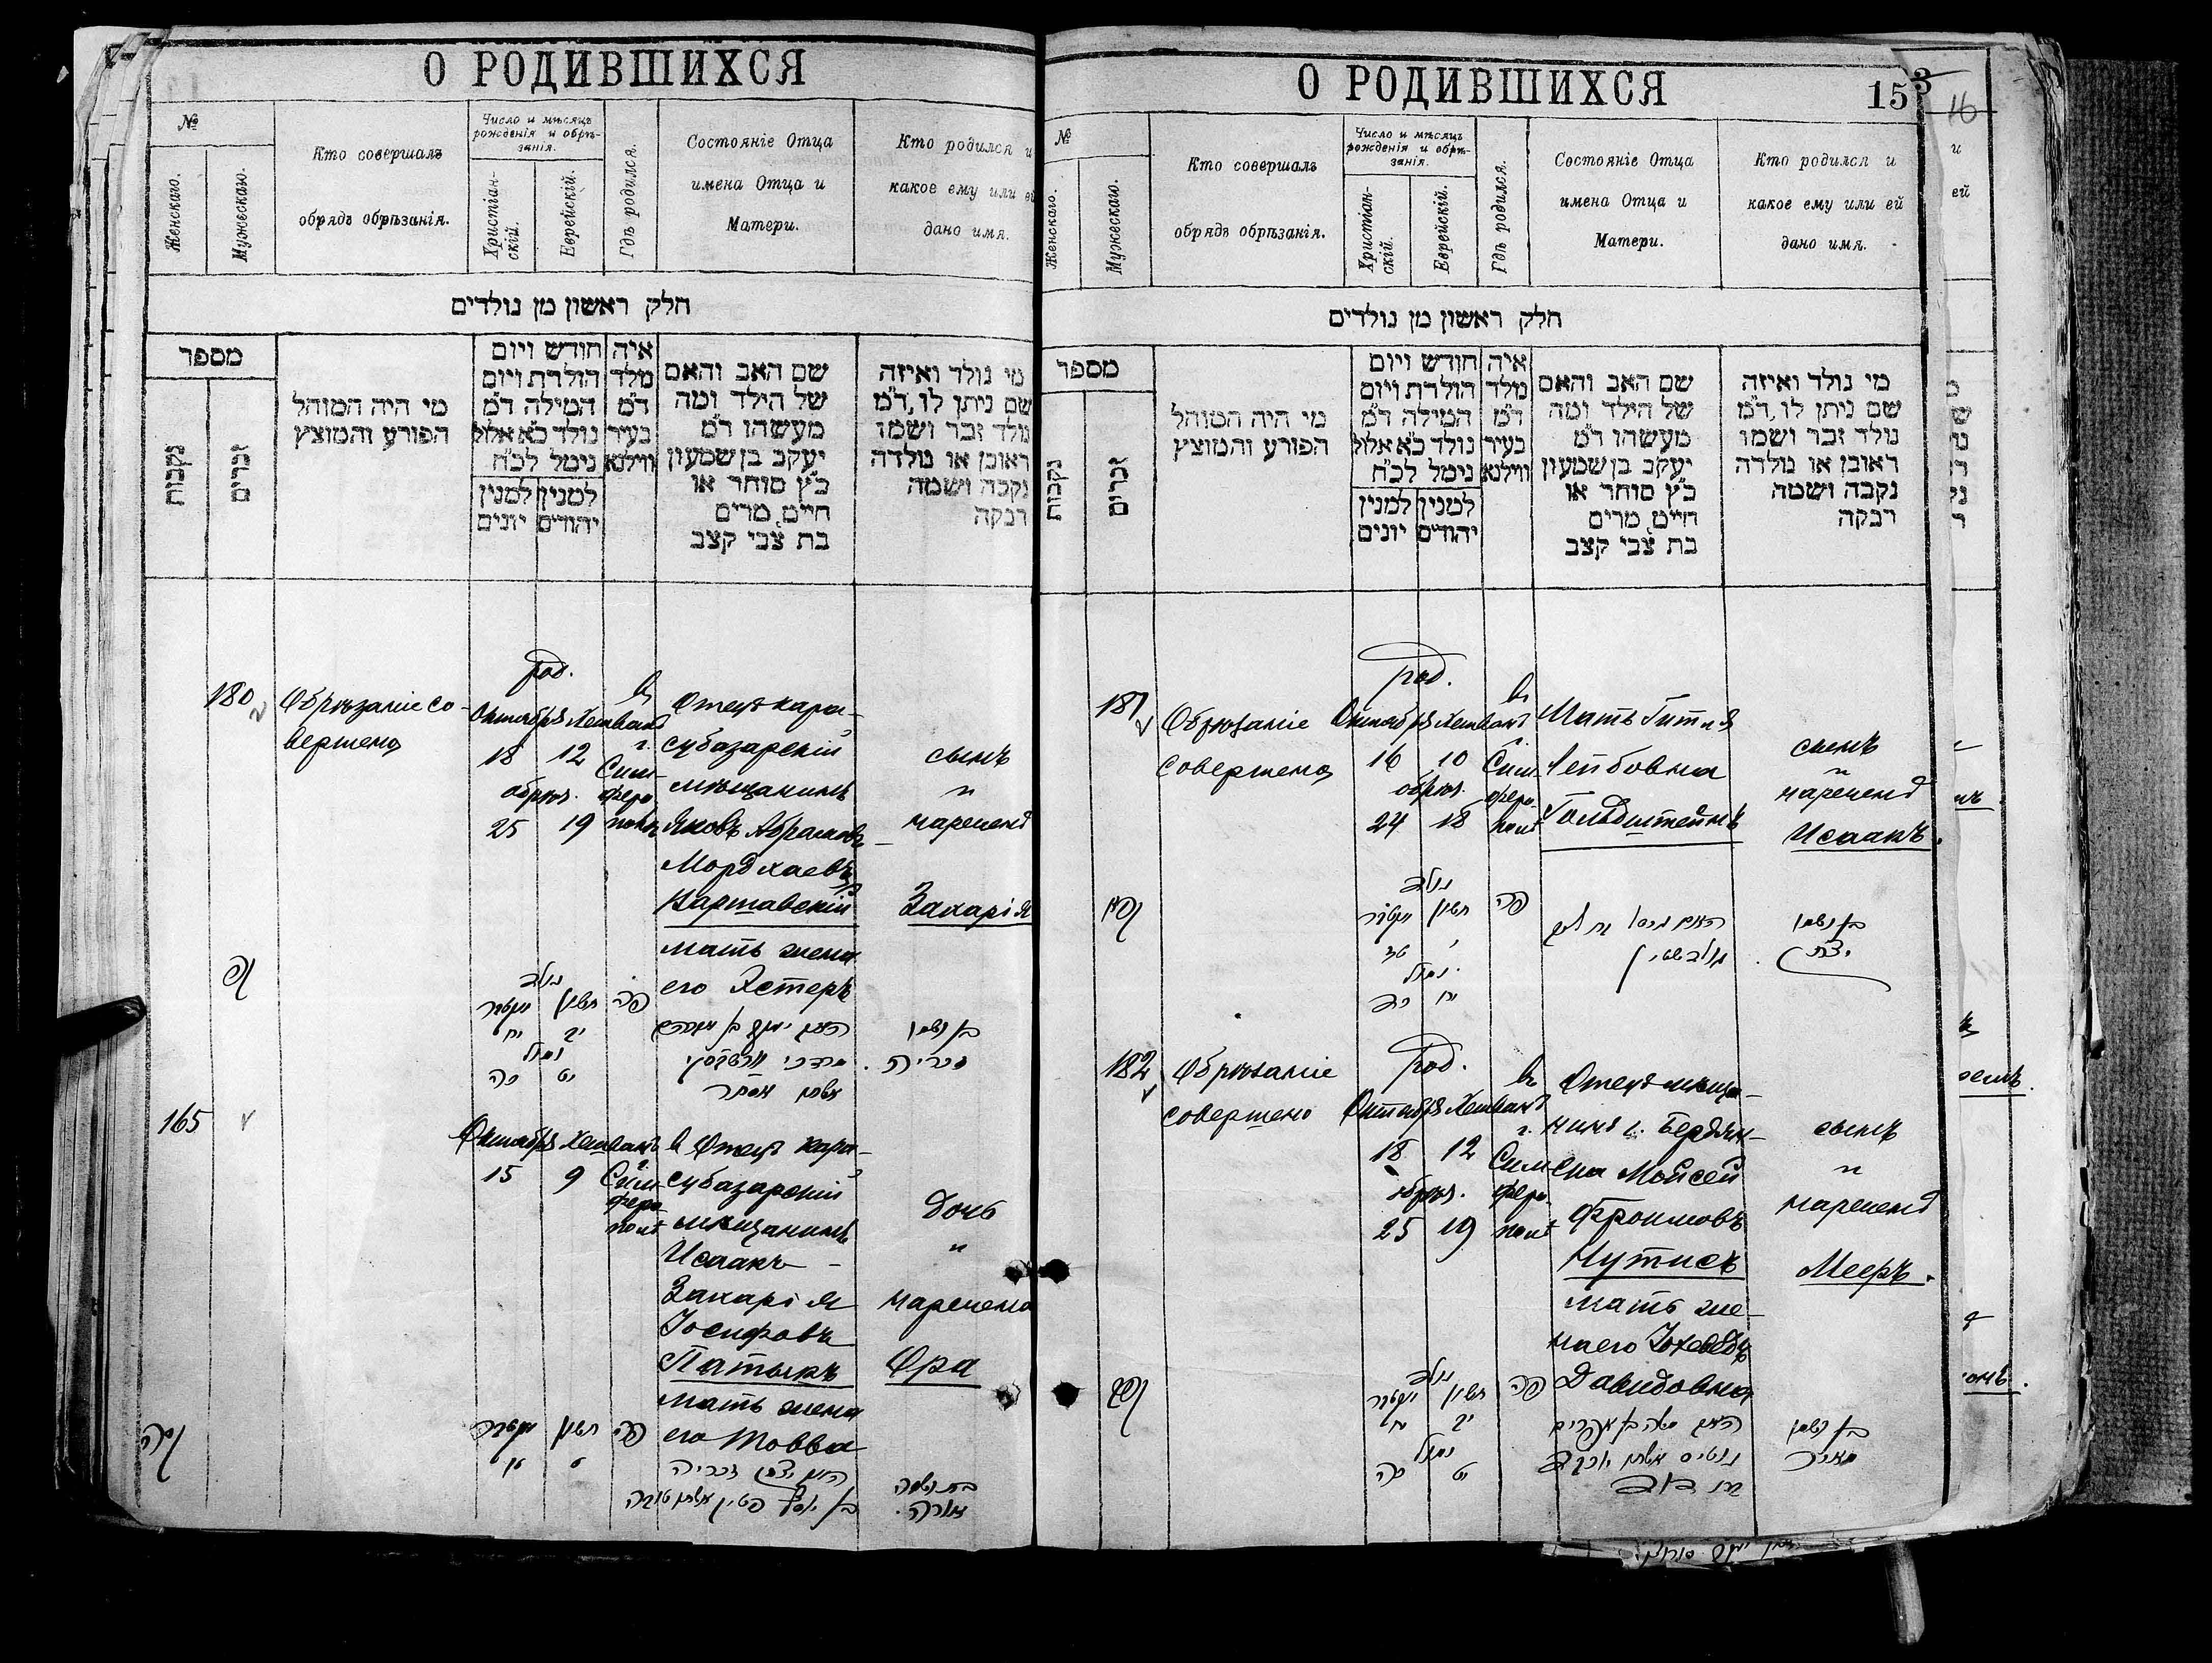 О РОДИВШИХСЯ
№
Женскаго.
Мужескаго.
Кто совершалъ
обрядъ обрѣзанія.
Число и мѣсяцъ
рожденія и обрѣ-
занія.
Христіан-
скій.
Еврейскій.
Гдѣ родился.
Состояніе Отца
имена Отца и
Матери.
Кто родился и
какое ему или ей
дано имя.
חלק ראשון מן נולדים
מספר
נקבות
זכרים
מי היה המוהל
הפורע והמוצץ
חודש ויום
הולדת ויום
המילה ד״מ
נולד כ״א אלול
נימל לכ״ח
למנין
יונים
למנין
יהודים
איה
מלד
ד״מ
בעיר
ווילנא
שם האב והאם
של הילד ומה
מעשהו ד״מ
יעקב בן שמעון
כ״ץ סוחר או
חיים, מרים
בת צבי קצב
מי נולד ואיזה
שם ניתן לו, ד״מ
נולד זכר ושמו
ראובן או נולדה
נקבה ושמה
רבקה
180
Обрѣзаніе со-
вершено
род.
Октября Хешванъ
18 12
обрѣз.
25 19
в г.
Сим-
феро-
полѣ
Отецъ кара-
субазарскій
мѣщанинъ
Яковъ Абрамовъ-
Мордхаевъ
Варшавскій
мать жена
его Эстеръ
сынъ
и
нареченъ
Захарія
קפ
נולד
חשון
יב
נמול
יט כה
פה
בן ושמו
זכריה
165
Октября Хешванъ
15 9
в г.
Сим-
феро-
полѣ
Отецъ кара-
субазарскій
мѣщанинъ
Исаакъ-
Захарія
Іосифовъ
Патыкъ
мать жена
его Товва
дочь
и
наречена
Ора
קסה
חשון
ט
פה
בת ושמה
אורה.
О РОДИВШИХСЯ
153
16
№
Женскаго.
Мужескаго.
Кто совершалъ
обрядъ обрѣзанія.
Число и мѣсяцъ
рожденія и обрѣ-
занія.
Христіан-
скій.
Еврейскій.
Гдѣ родился.
Состояніе Отца
имена Отца и
Матери.
Кто родился и
какое ему или ей
дано имя.
חלק ראשון מן נולדים
מספר
נקבות
זכרים
מי היה המוהל
הפורע והמוצץ
חודש ויום
הולדת ויום
המילה ד״מ
נולד כ״א אלול
נימל לכ״ח
למנין
יונים
למנין
יהודים
איה
מלד
ד״מ
בעיר
ווילנא
שם האב והאם
של הילד ומה
מעשהו ד״מ
יעקב בן שמעון
כ״ץ סוחר או
חיים, מרים
בת צבי קצב
מי נולד ואיזה
שם ניתן לו, ד״מ
נולד זכר ושמו
ראובן או נולדה
נקבה ושמה
רבקה
181
Обрѣзаніе
совершено
род.
Октября Хешванъ
16 10
обрѣз.
24 18
в г.
Сим-
феро-
полѣ
Мать Гитля
Лейбовна
Гольдштейнъ
сынъ
и
нареченъ
Исаакъ.
נולד
חשון
י
נמול
יח כד
פה
גולדשטיין
בן ושמו
יצחק
182
Обрѣзаніе
совершено
род.
Октября Хешванъ
18 12
обрѣз.
25 19
в г.
Сим-
феро-
полѣ
Отецъ мѣща-
нинъ г. Бердян-
ска Мойсей
Фроимовъ
Нутисъ
мать же-
на его Іохеведъ
Давидовна
сынъ
и
нареченъ
Мееръ.
קפב
נולד
חשון
יב
נמול
יט כה
פה
האב משה בן אפרים
נוטיס אשתו יוכבד
בת דוד
בן ושמו
מאיר